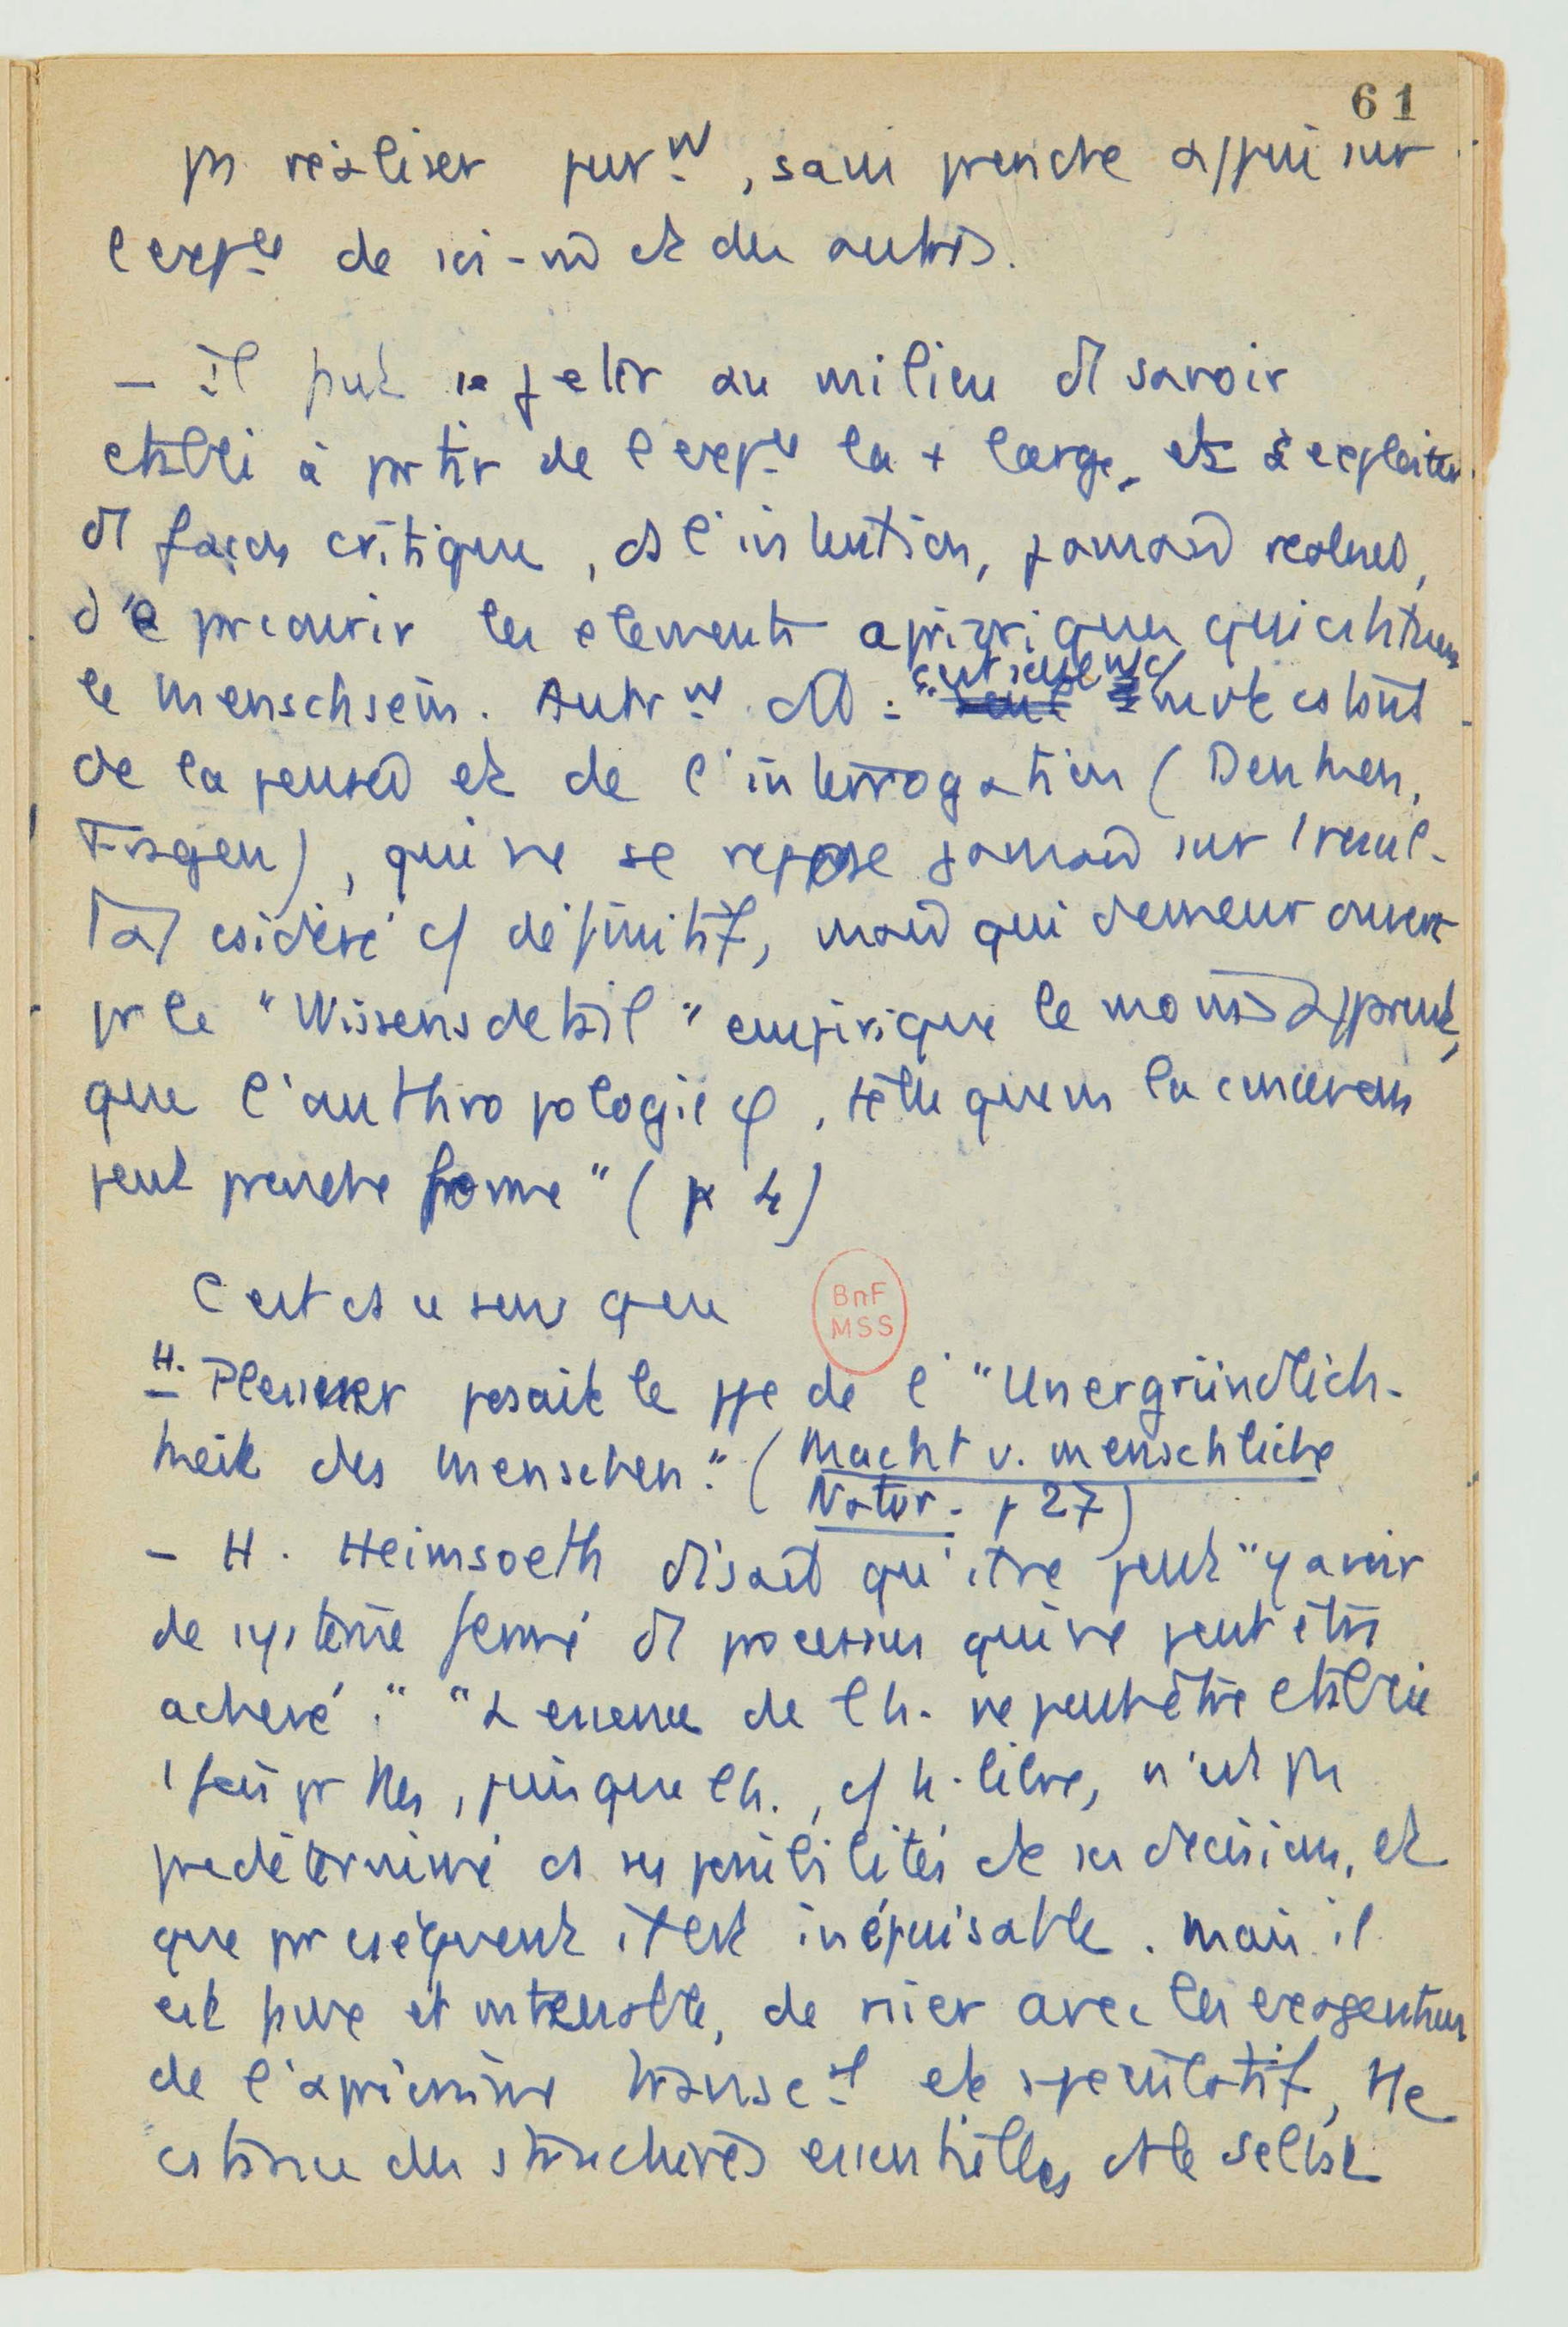 61
ps réaliser purmt, sans prendre appui sur
l'expce de soi-m et des autres.
– il faut se jeter au milieu d'1 savoir
établi à partir de l'expce la + large, et l'exploiter
d'1 façon critique, ds l'intention, jamais
découvrir les éléments aprioriques qui constituent
le Menschsein. Autrmt dit : "
de la pensée et de l'interrogation (Denken,
Fragen), qui ne se repose jamais sur 1 résul-
tat considéré c/ définitif, mais qui demeure ouvert
pr le "Wissensdetail" empirique le moins apparent,
que l'anthropologie φ, telle que ns la concevons
peut prendre forme" (p 4)
C'est ds ce sens que
BnF
MSS
– H. Plessner posait le ppe de l'"Unergründlich-
keit des Menschen." (Macht u. menschliche
Natur. p 27)
– H. Heimsoeth disait qu'il ne peut "y avoir
de système fermé d'1 processus qui ne peut être
achevé." "L'essence de l'h. ne peut être établie
1 fois pr ttes, puisque l'h., c/ h. libre, n'est pas
prédéterminé ds ses possibilités de sa décision, et
que par conséquent il est inépuisable. Mais il
est de nier avec les exagérations
de l'apriorisme transcal et spéculatif, tte
constance des structures essentielles de le Selbst